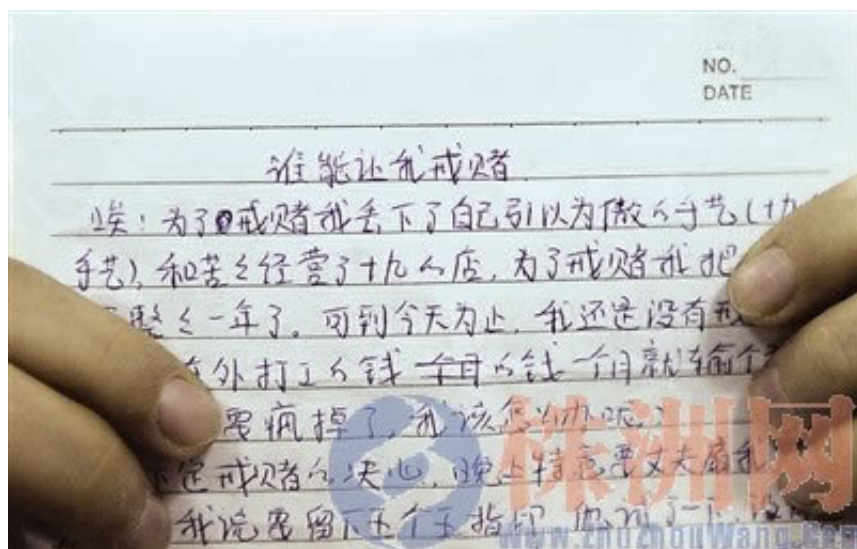 NO.
DATE
谁能让我戒赌
唉!为了戒赌我丢下了自己引以为傲的手艺(十九
手艺),和苦々经营了十九的店,为了戒赌我把
整々一年了。可到今天为止,我还是没有戒
在外打工的钱 个月的钱一个月就输个
要疯掉了,我该怎么办呢?
定戒赌的决心,晚上特意要丈夫扇我
我说要留下五个手指印,他
株洲网
www.ZhuZhouWang.Com